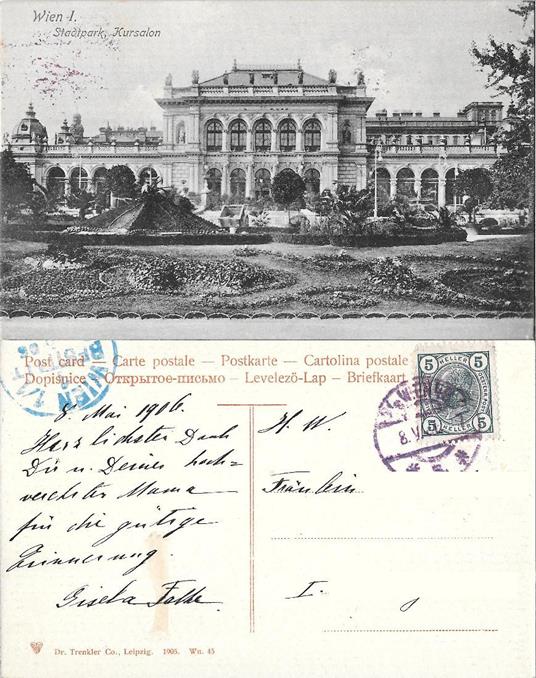 Wien I.
Stadtpark, Kursalon
Post card — Carte postale — Postkarte — Cartolina postale
Dopisnice — Открытое-письмо — Levelező-Lap — Briefkaart
WIEN 1/1
BEST
06
5 HELLER 5
5 HELLER 5
WIEN
8. V.
8. Mai 1906.
Herzlichsten Dank
Dir u. Deiner hoch=
verehrten Mama
für die gütige
Erinnerung.
Gisela
H. W.
Fräulein
I.
Dr. Trenkler Co., Leipzig. 1905. Wn. 45